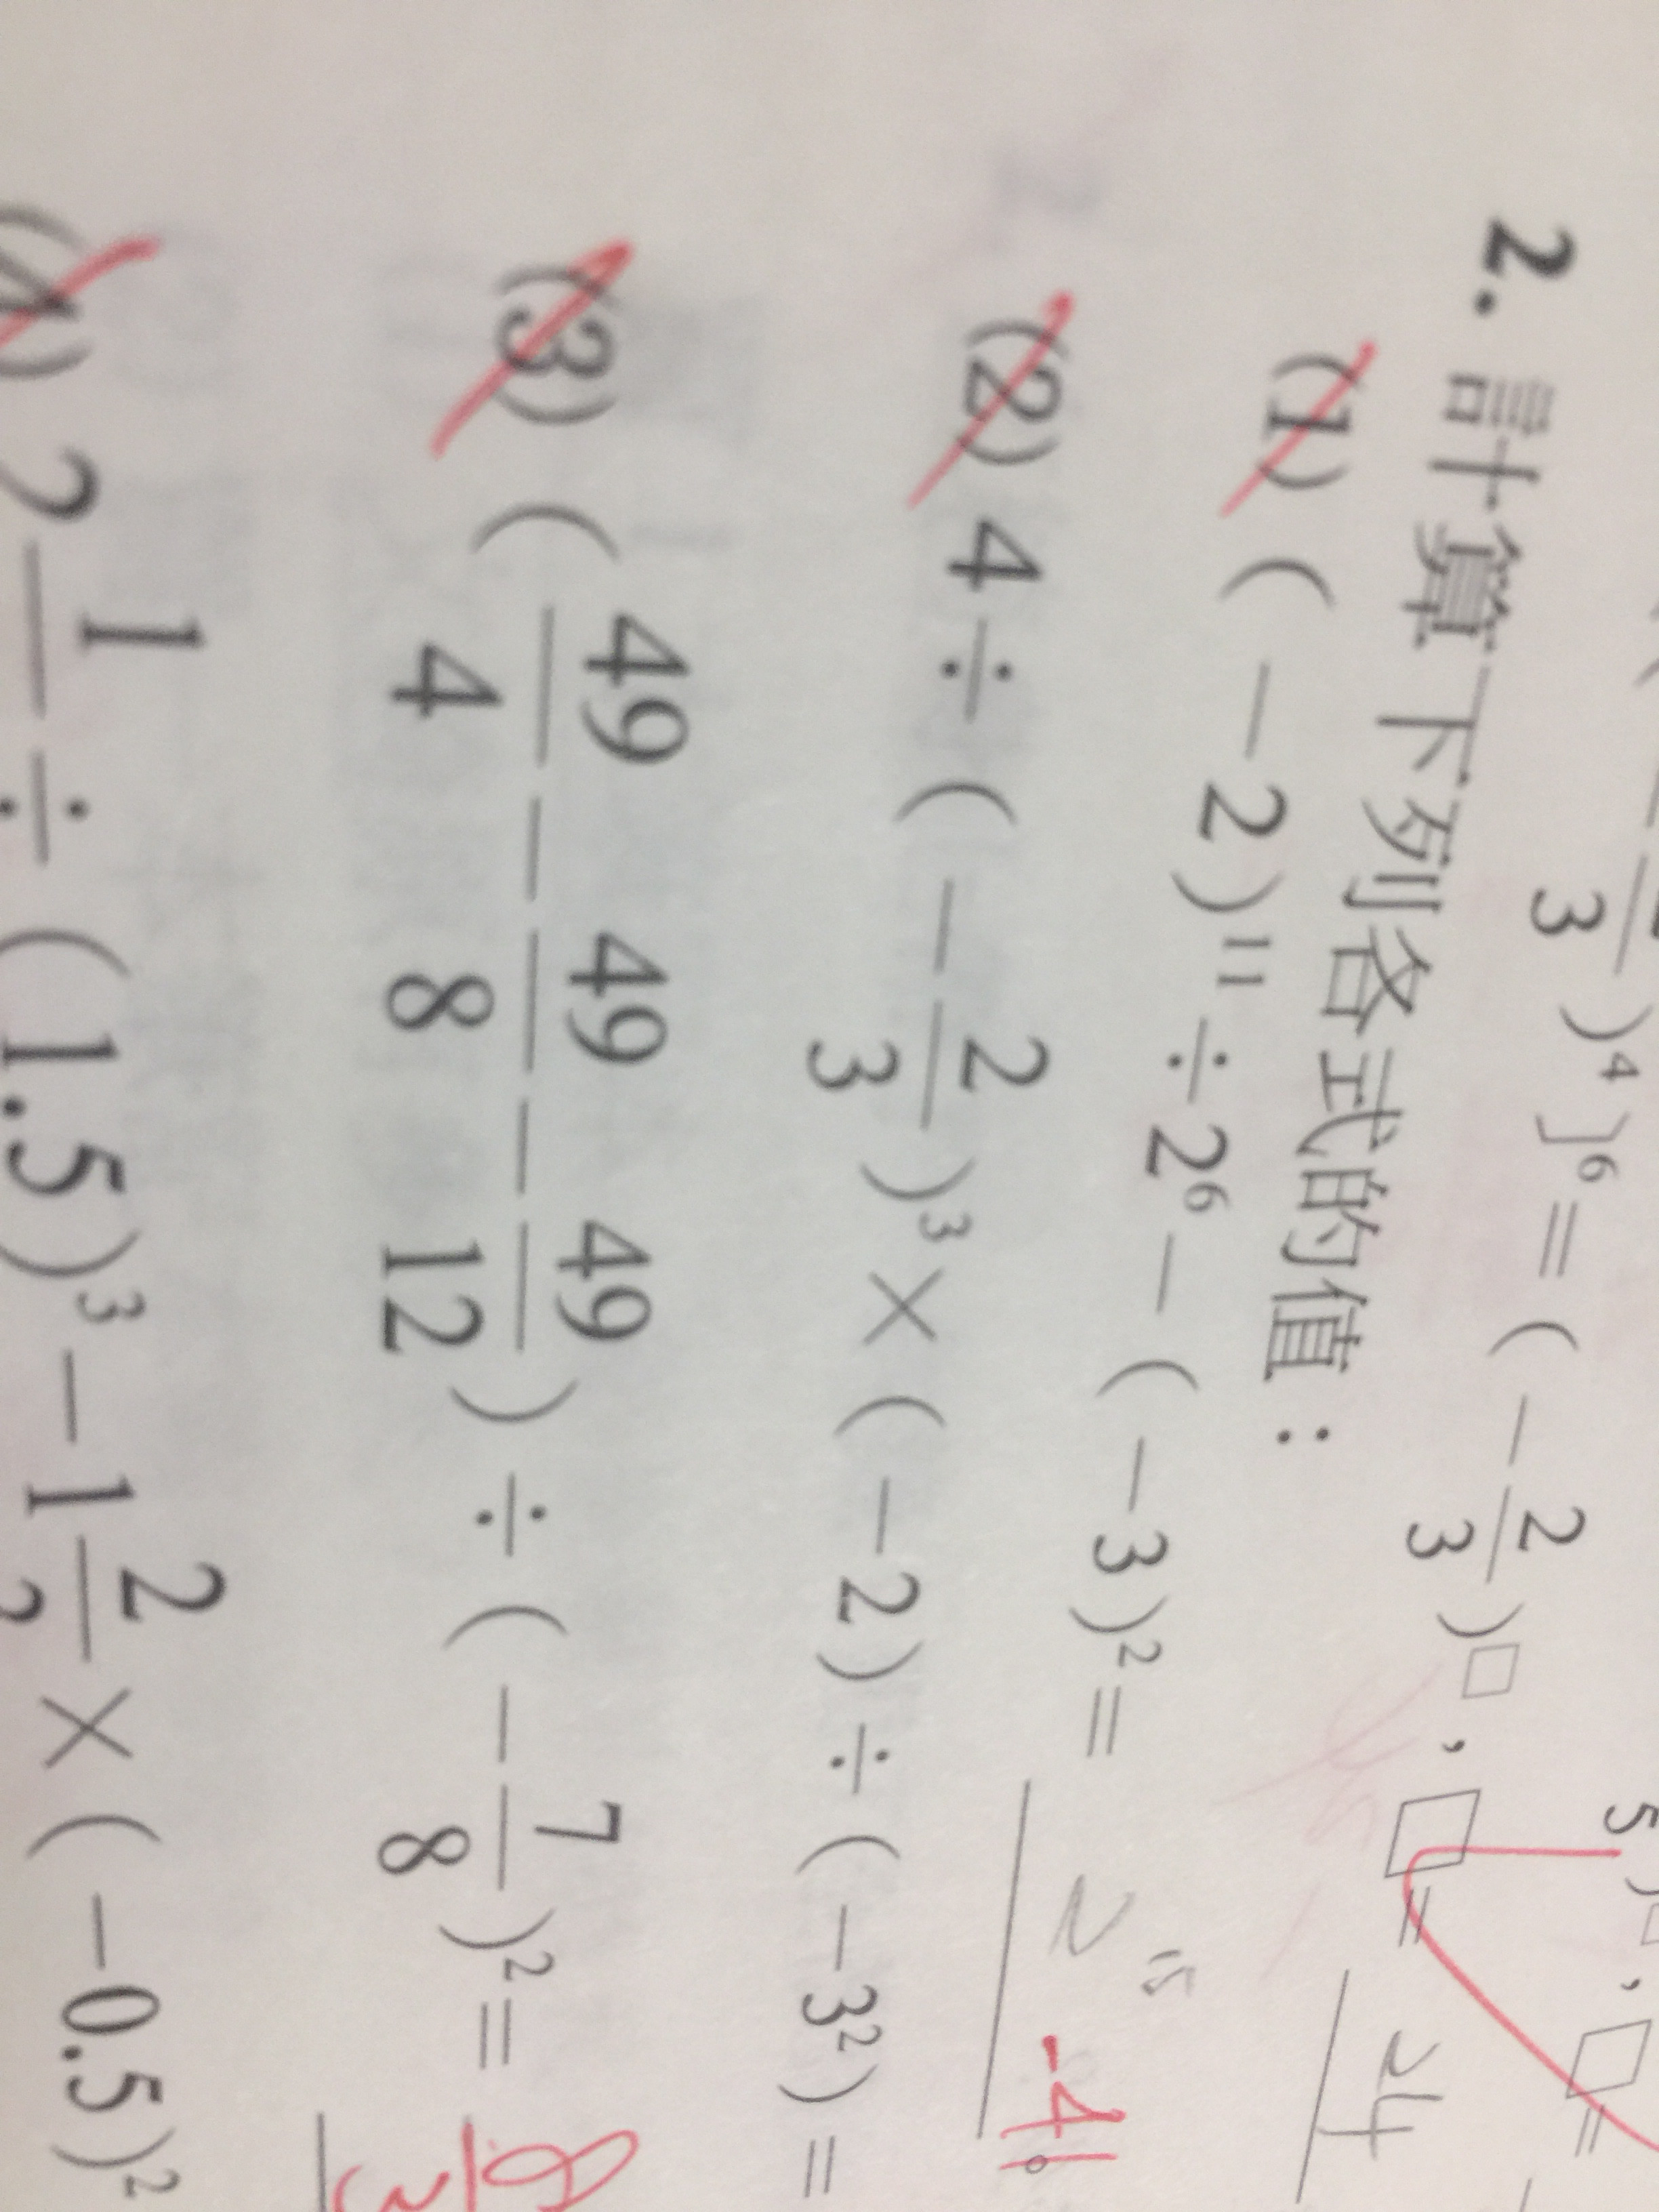 3)⁴]⁶=(-2/3)□,□= 24
5)□,□=
2.計算下列各式的值:
(1)(-2)¹¹÷2⁶-(-3)²= 2¹⁵ -41
(2)4÷(-2/3)³×(-2)÷(-3²)=
(3)(49/4-49/8-49/12)÷(-7/8)²= 8/3
1/2÷(1.5)³-1 2/×(-0.5)²